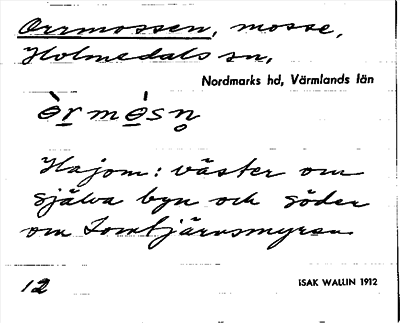 Orrmossen, mosse,
Holmedals sn,
Nordmarks hd, Värmlands län
ɵ̀r mɵ́sn̥
Hajom: väster om
själva byn och söder
om Tomtjärnsmyren
12
ISAK WALLIN 1912